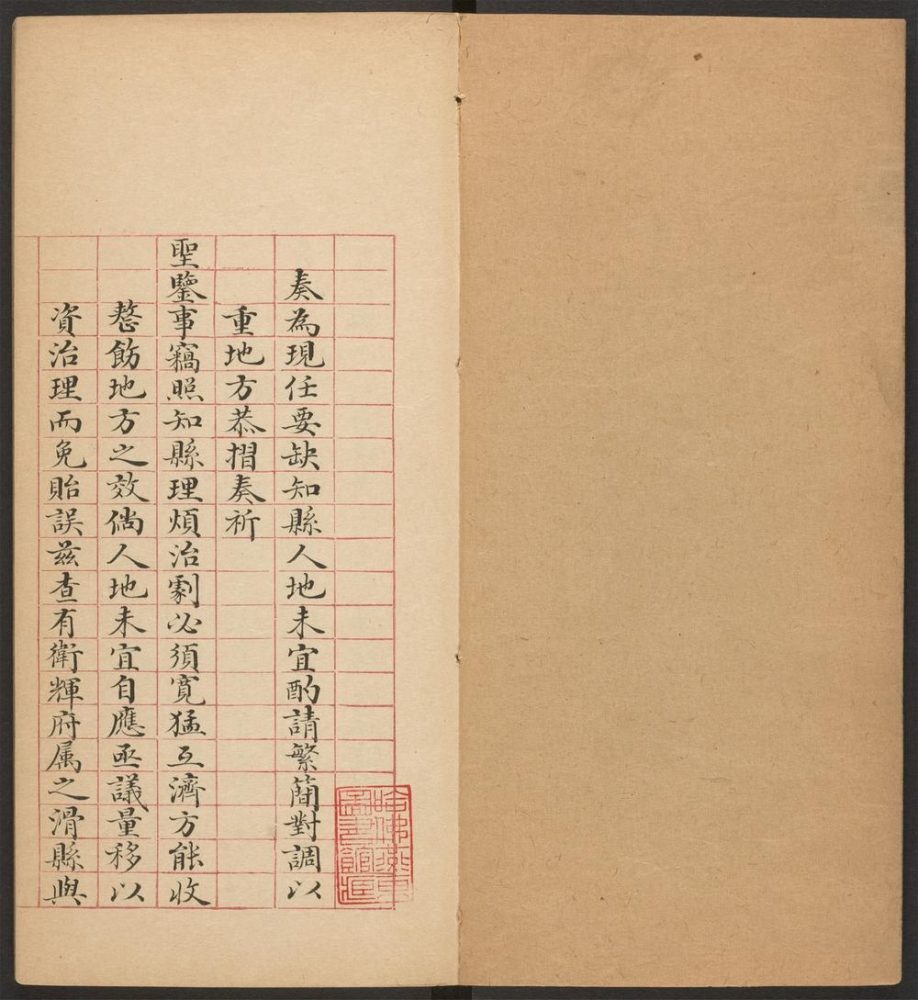 奏為現任要缺知縣人地未宜酌請繁簡對調以
重地方恭摺奏祈
聖鑒事竊照知縣理煩治劇必須寬猛互濟方能收
整飭地方之效倘人地未宜自應亟議量移以
資治理而免貽誤茲查有衛輝府属之滑縣與
哈佛燕京
圖書館藏